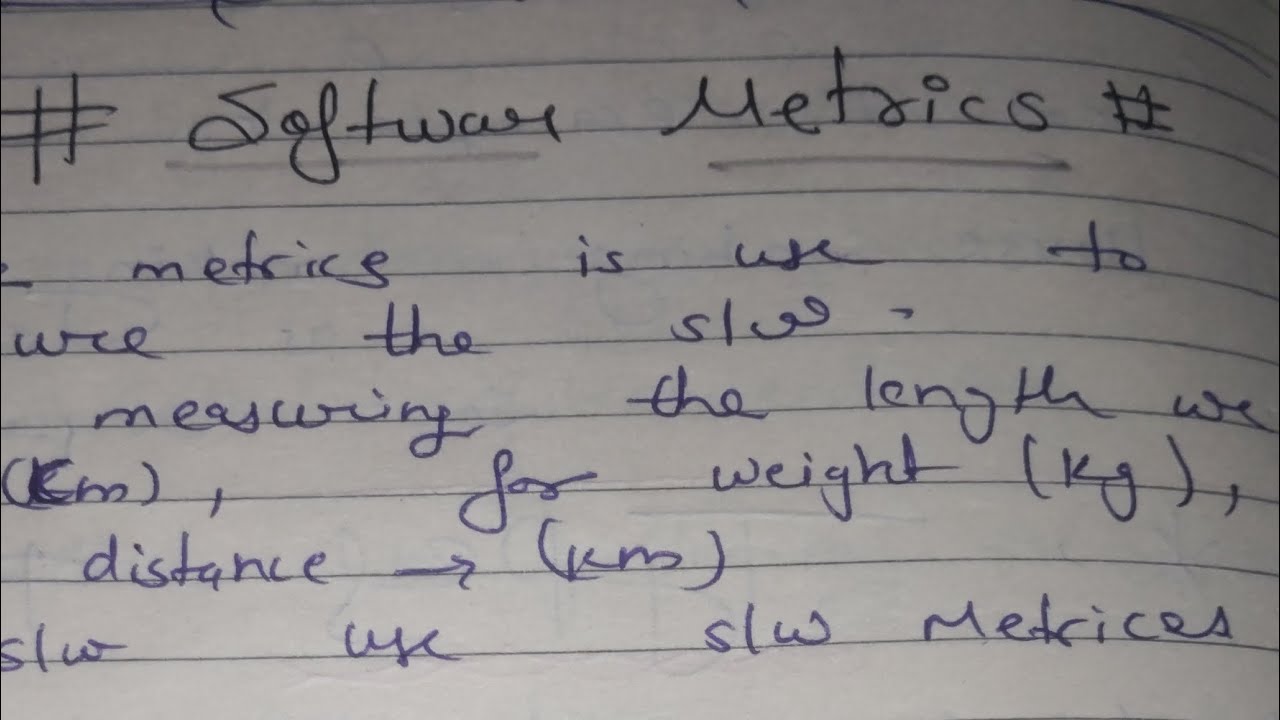 # Software Metrics #
metrics is use to
ure the s/w.
measuring the length we
(cm), for weight (kg),
distance → (km)
s/w use s/w Metrices